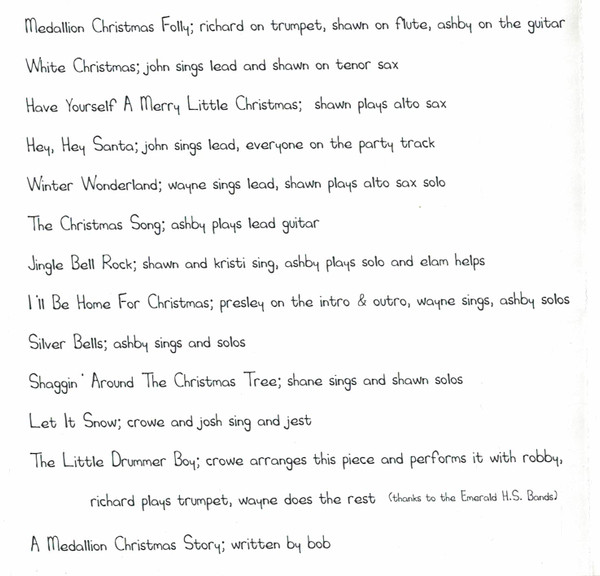 Medallion Christmas Folly; richard on trumpet, shawn on flute, ashby on the guitar
White Christmas; john sings lead and shawn on tenor sax
Have Yourself A Merry Little Christmas; shawn plays alto sax
Hey, Hey Santa; john sings lead, everyone on the party track
Winter Wonderland; wayne sings lead, shawn plays alto sax solo
The Christmas Song; ashby plays lead guitar
Jingle Bell Rock; shawn and kristi sing, ashby plays solo and elam helps
I'll Be Home For Christmas; presley on the intro & outro, wayne sings, ashby solos
Silver Bells; ashby sings and solos
Shaggin' Around The Christmas Tree; shane sings and shawn solos
Let It Snow; crowe and josh sing and jest
The Little Drummer Boy; crowe arranges this piece and performs it with robby,
richard plays trumpet, wayne does the rest (thanks to the Emerald H.S. Bands)
A Medallion Christmas Story; written by bob